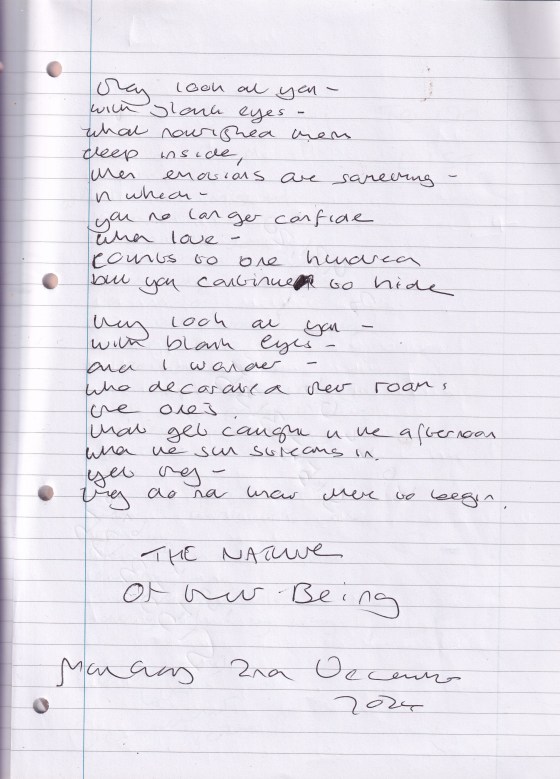 they look at you -
with blank eyes -
what nourished them
deep inside,
their emotions are something -
in which -
you no longer confide
when love -
counts to one hundred
but you continue to hide
they look at you -
with blank eyes -
and I wonder -
who decorated their rooms
the ones
that get caught in the afternoon
when the sun streams in.
yet they -
they do not know where to begin.
THE NATURE
Of Our Being
Monday 2nd December
2024